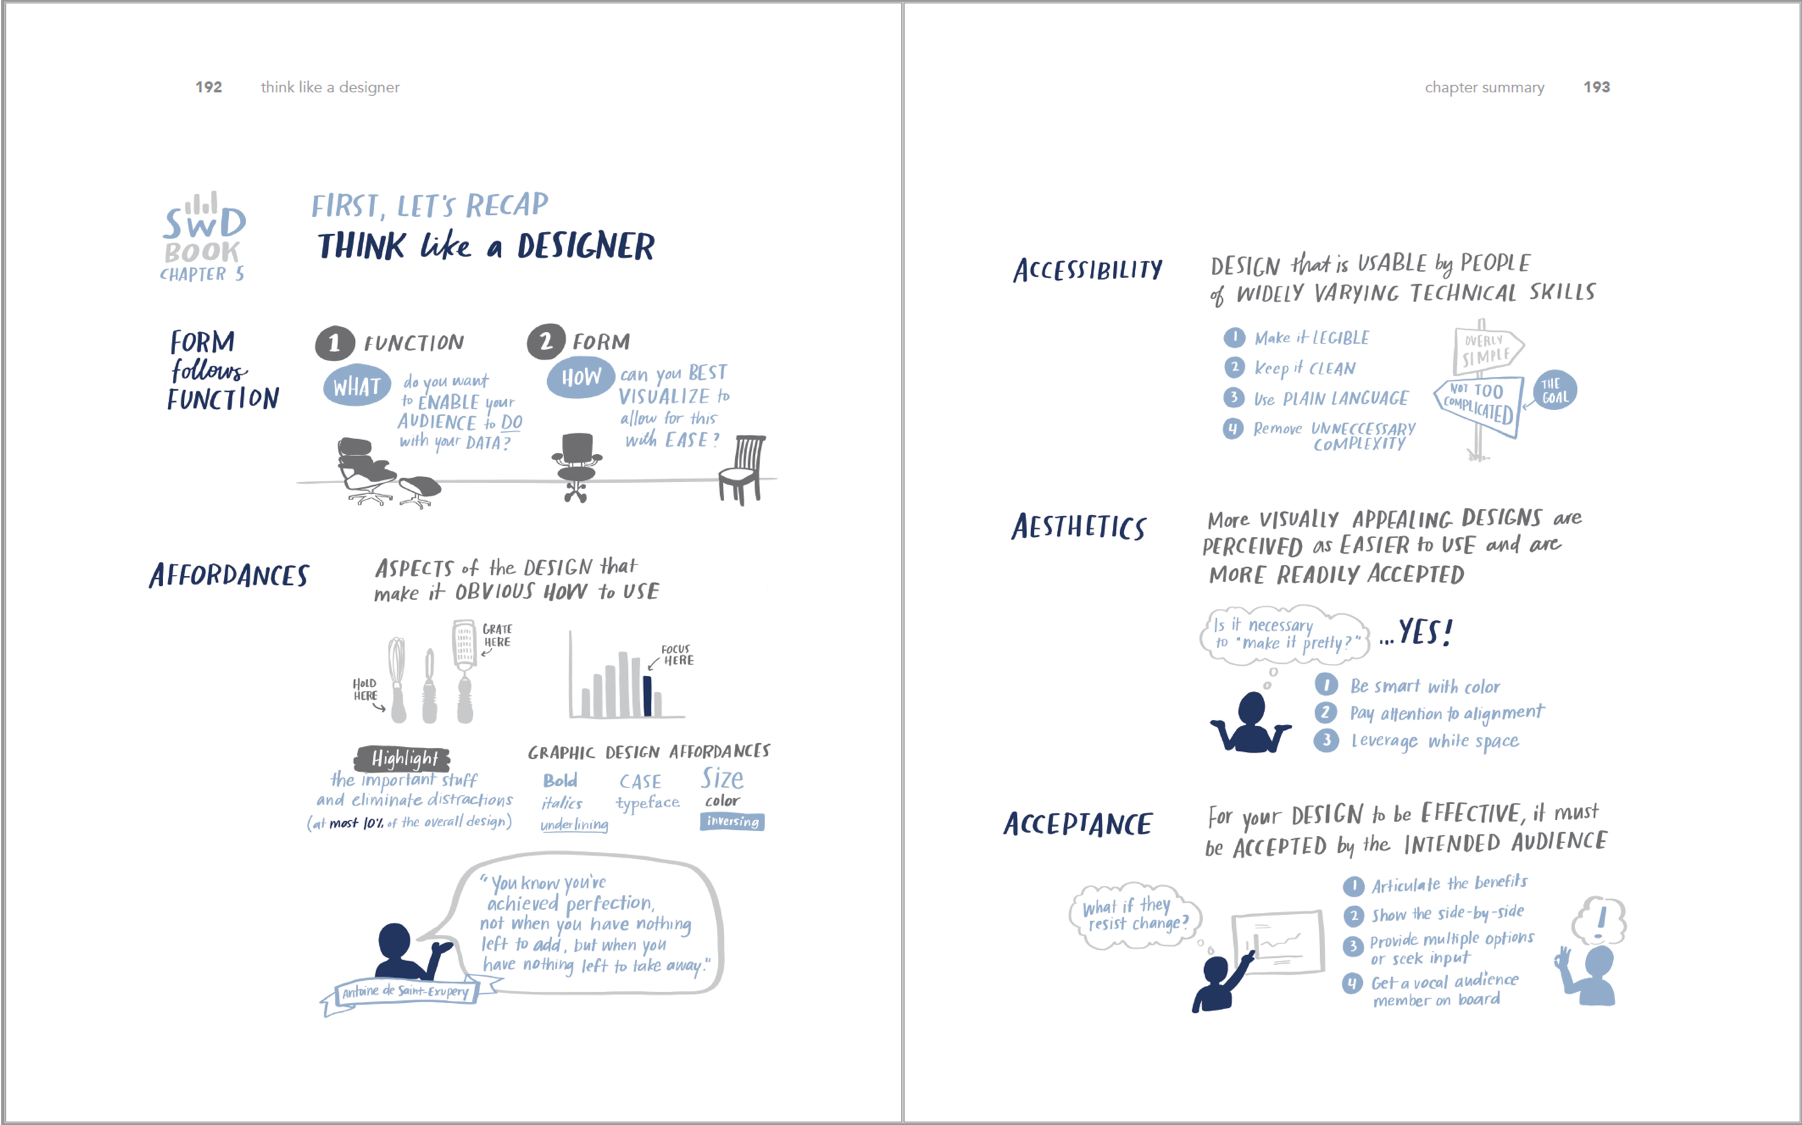 192 think like a designer
SWD
BOOK
CHAPTER 5
FIRST, LET'S RECAP
THINK like a DESIGNER
FORM
follows
FUNCTION
1 FUNCTION
WHAT
do you want
to ENABLE your
AUDIENCE to DO
with your DATA?
2 FORM
HOW
can you BEST
VISUALIZE to
allow for this
with EASE?
AFFORDANCES
ASPECTS of the DESIGN that
make it OBVIOUS HOW to USE
HOLD
HERE
GRATE
HERE
FOCUS
HERE
Highlight
the important stuff
and eliminate distractions
(at most 10% of the overall design)
GRAPHIC DESIGN AFFORDANCES
Bold CASE Size
italics typeface color
underlining inversing
"You know you've
achieved perfection,
not when you have nothing
left to add, but when you
have nothing left to take away."
Antoine de Saint-Exupery
chapter summary 193
ACCESSIBILITY
DESIGN that is USABLE by PEOPLE
of WIDELY VARYING TECHNICAL SKILLS
1 Make it LEGIBLE
2 Keep it CLEAN
3 Use PLAIN LANGUAGE
4 Remove UNNECCESSARY
COMPLEXITY
OVERLY
SIMPLE
NOT TOO
COMPLICATED
THE
GOAL
AESTHETICS
More VISUALLY APPEALING DESIGNS are
PERCEIVED as EASIER to USE and are
MORE READILY ACCEPTED
Is it necessary
to "make it pretty?"
...YES!
1 Be smart with color
2 Pay attention to alignment
3 Leverage white space
ACCEPTANCE
For your DESIGN to be EFFECTIVE, it must
be ACCEPTED by the INTENDED AUDIENCE
What if they
resist change?
1 Articulate the benefits
2 Show the side-by-side
3 Provide multiple options
or seek input
4 Get a vocal audience
member on board
!